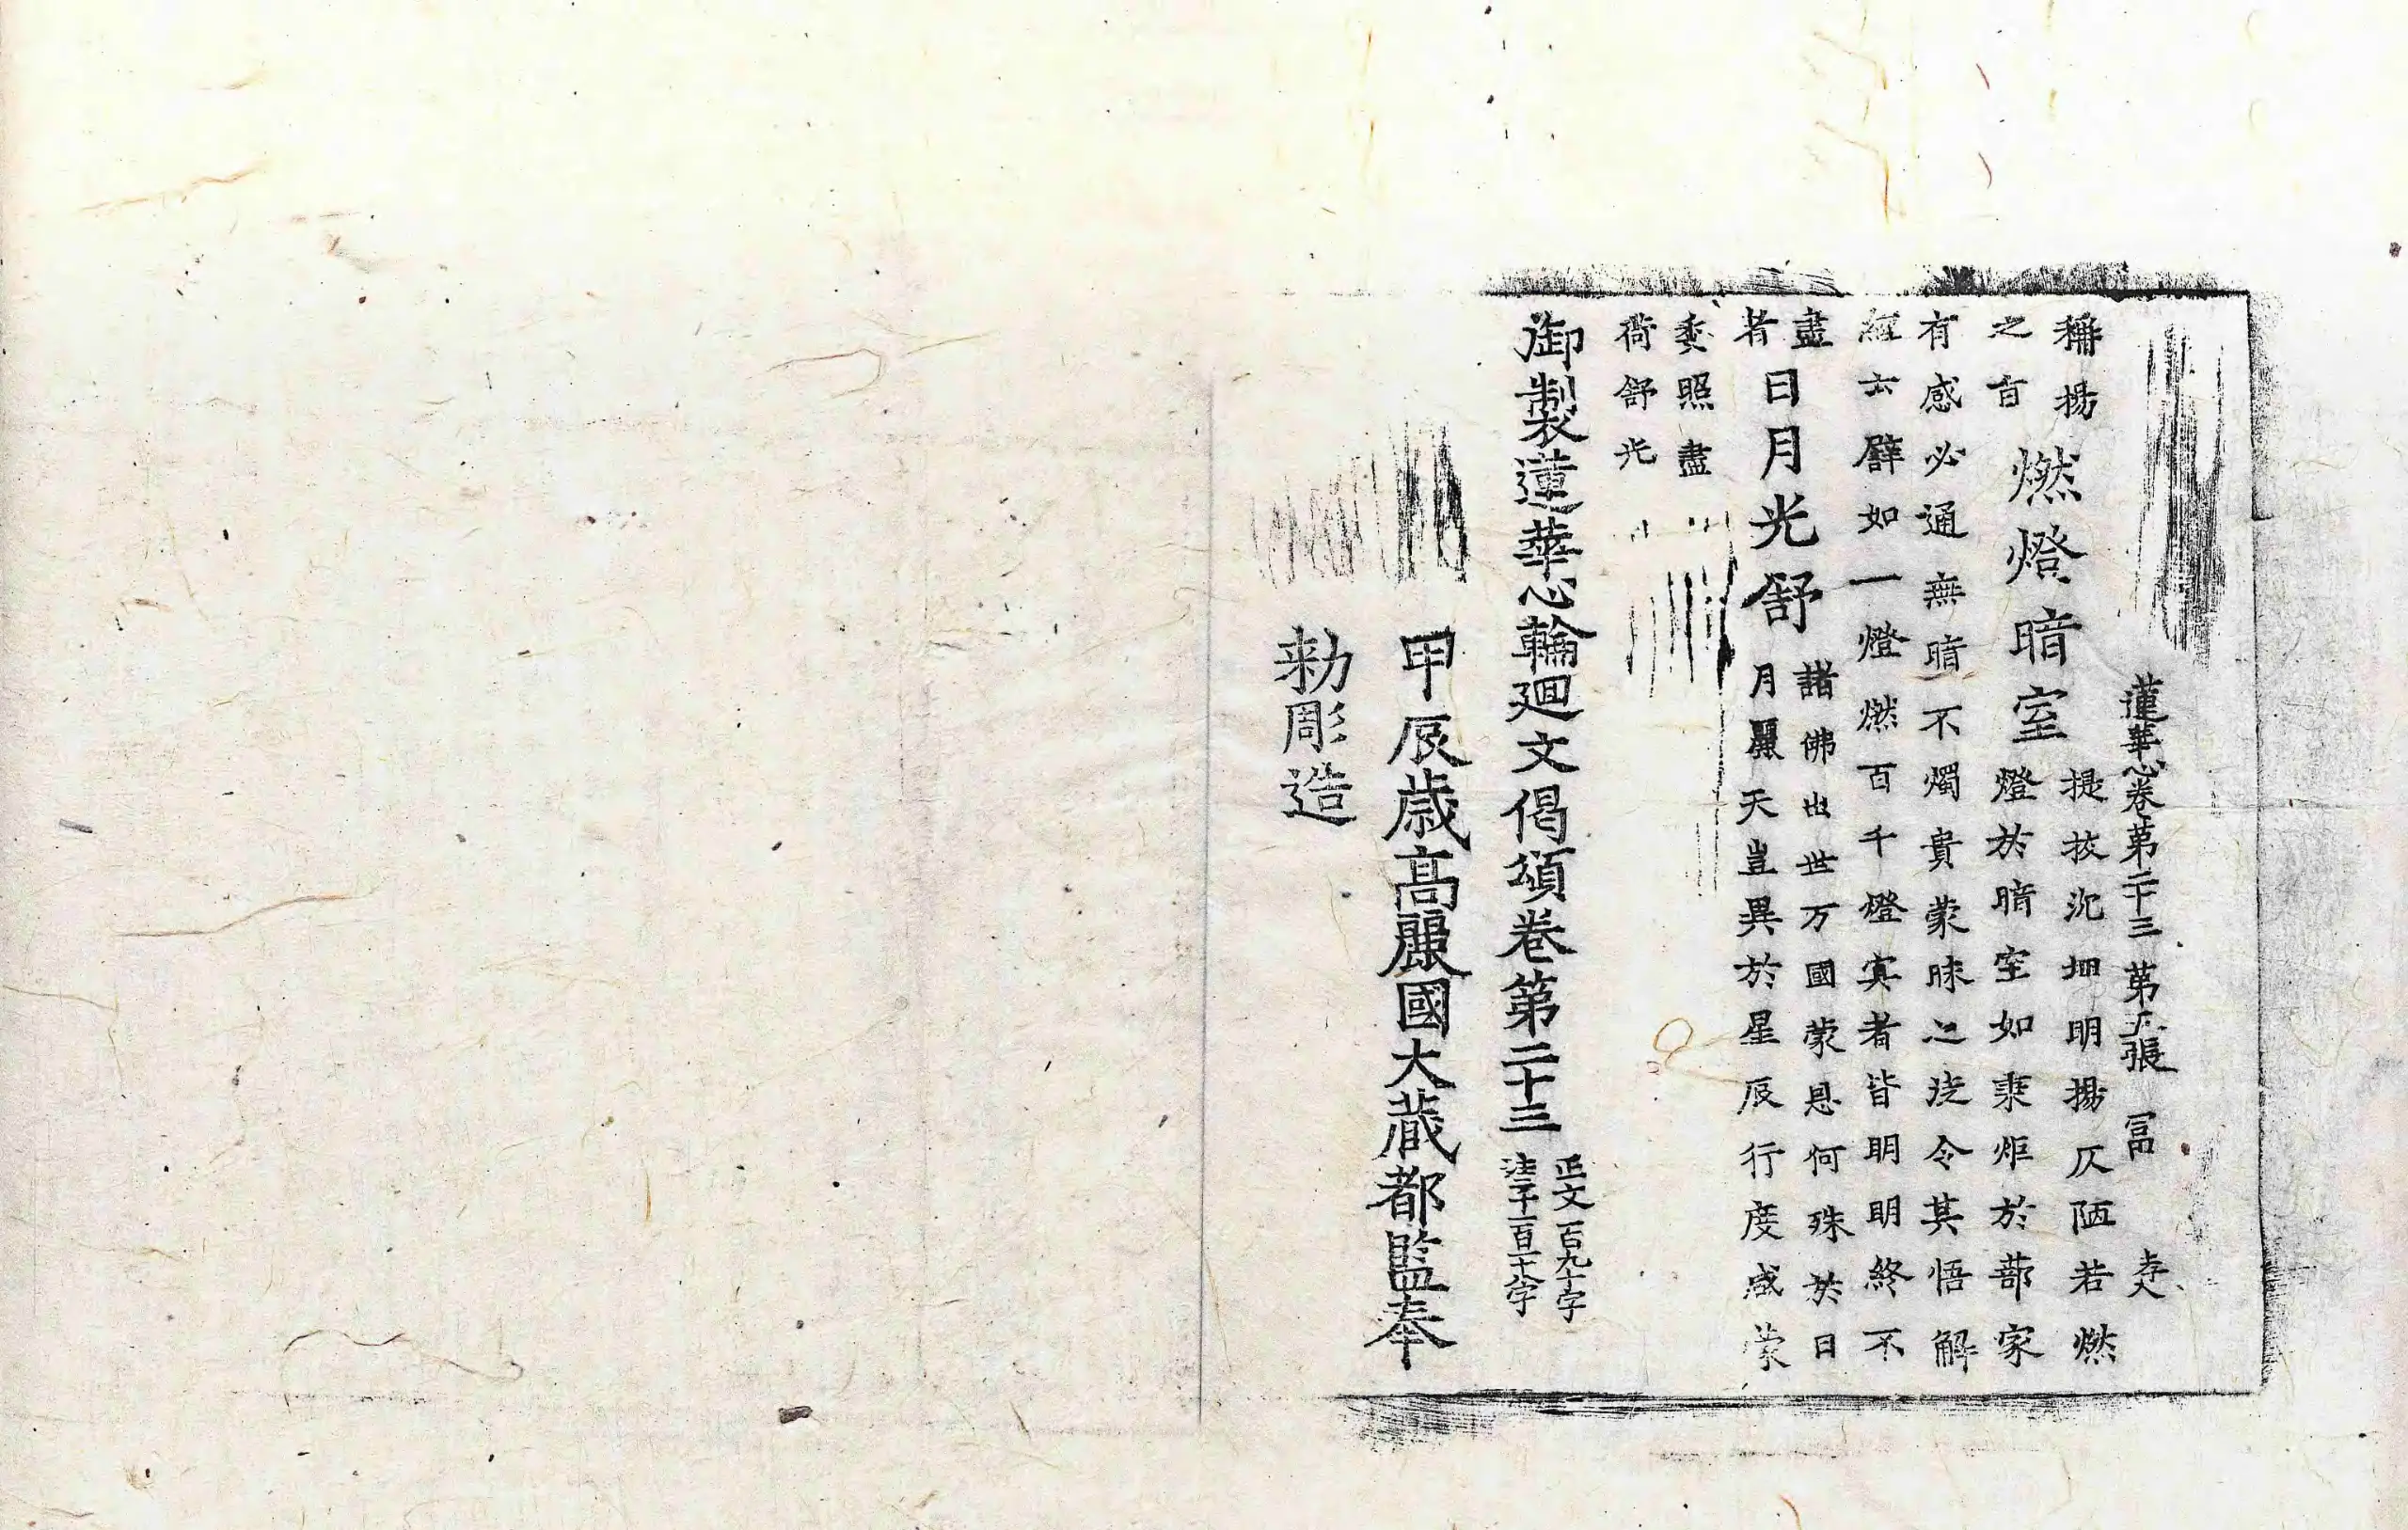 蓮華心卷第二十三 第五張 冨 孝大
稱揚 提拔沉細明揚仄陋若燃
之言 燃燈暗室 燈於暗室如秉炬於蔀家
有感必通無暗不燭貴蒙昧之流令其悟解
經云譬如一燈燃百千燈寘者皆明明終不
盡 日月光舒 諸佛出世万國蒙恩何殊於日
者 月麗天豈異於星辰行度咸蒙
委照盡
荷舒光
御製蓮華心輪廻文偈頌卷第二十三 正文一百九十字 注三千一百二十八字
甲辰歲高麗國大藏都監奉
勅彫造